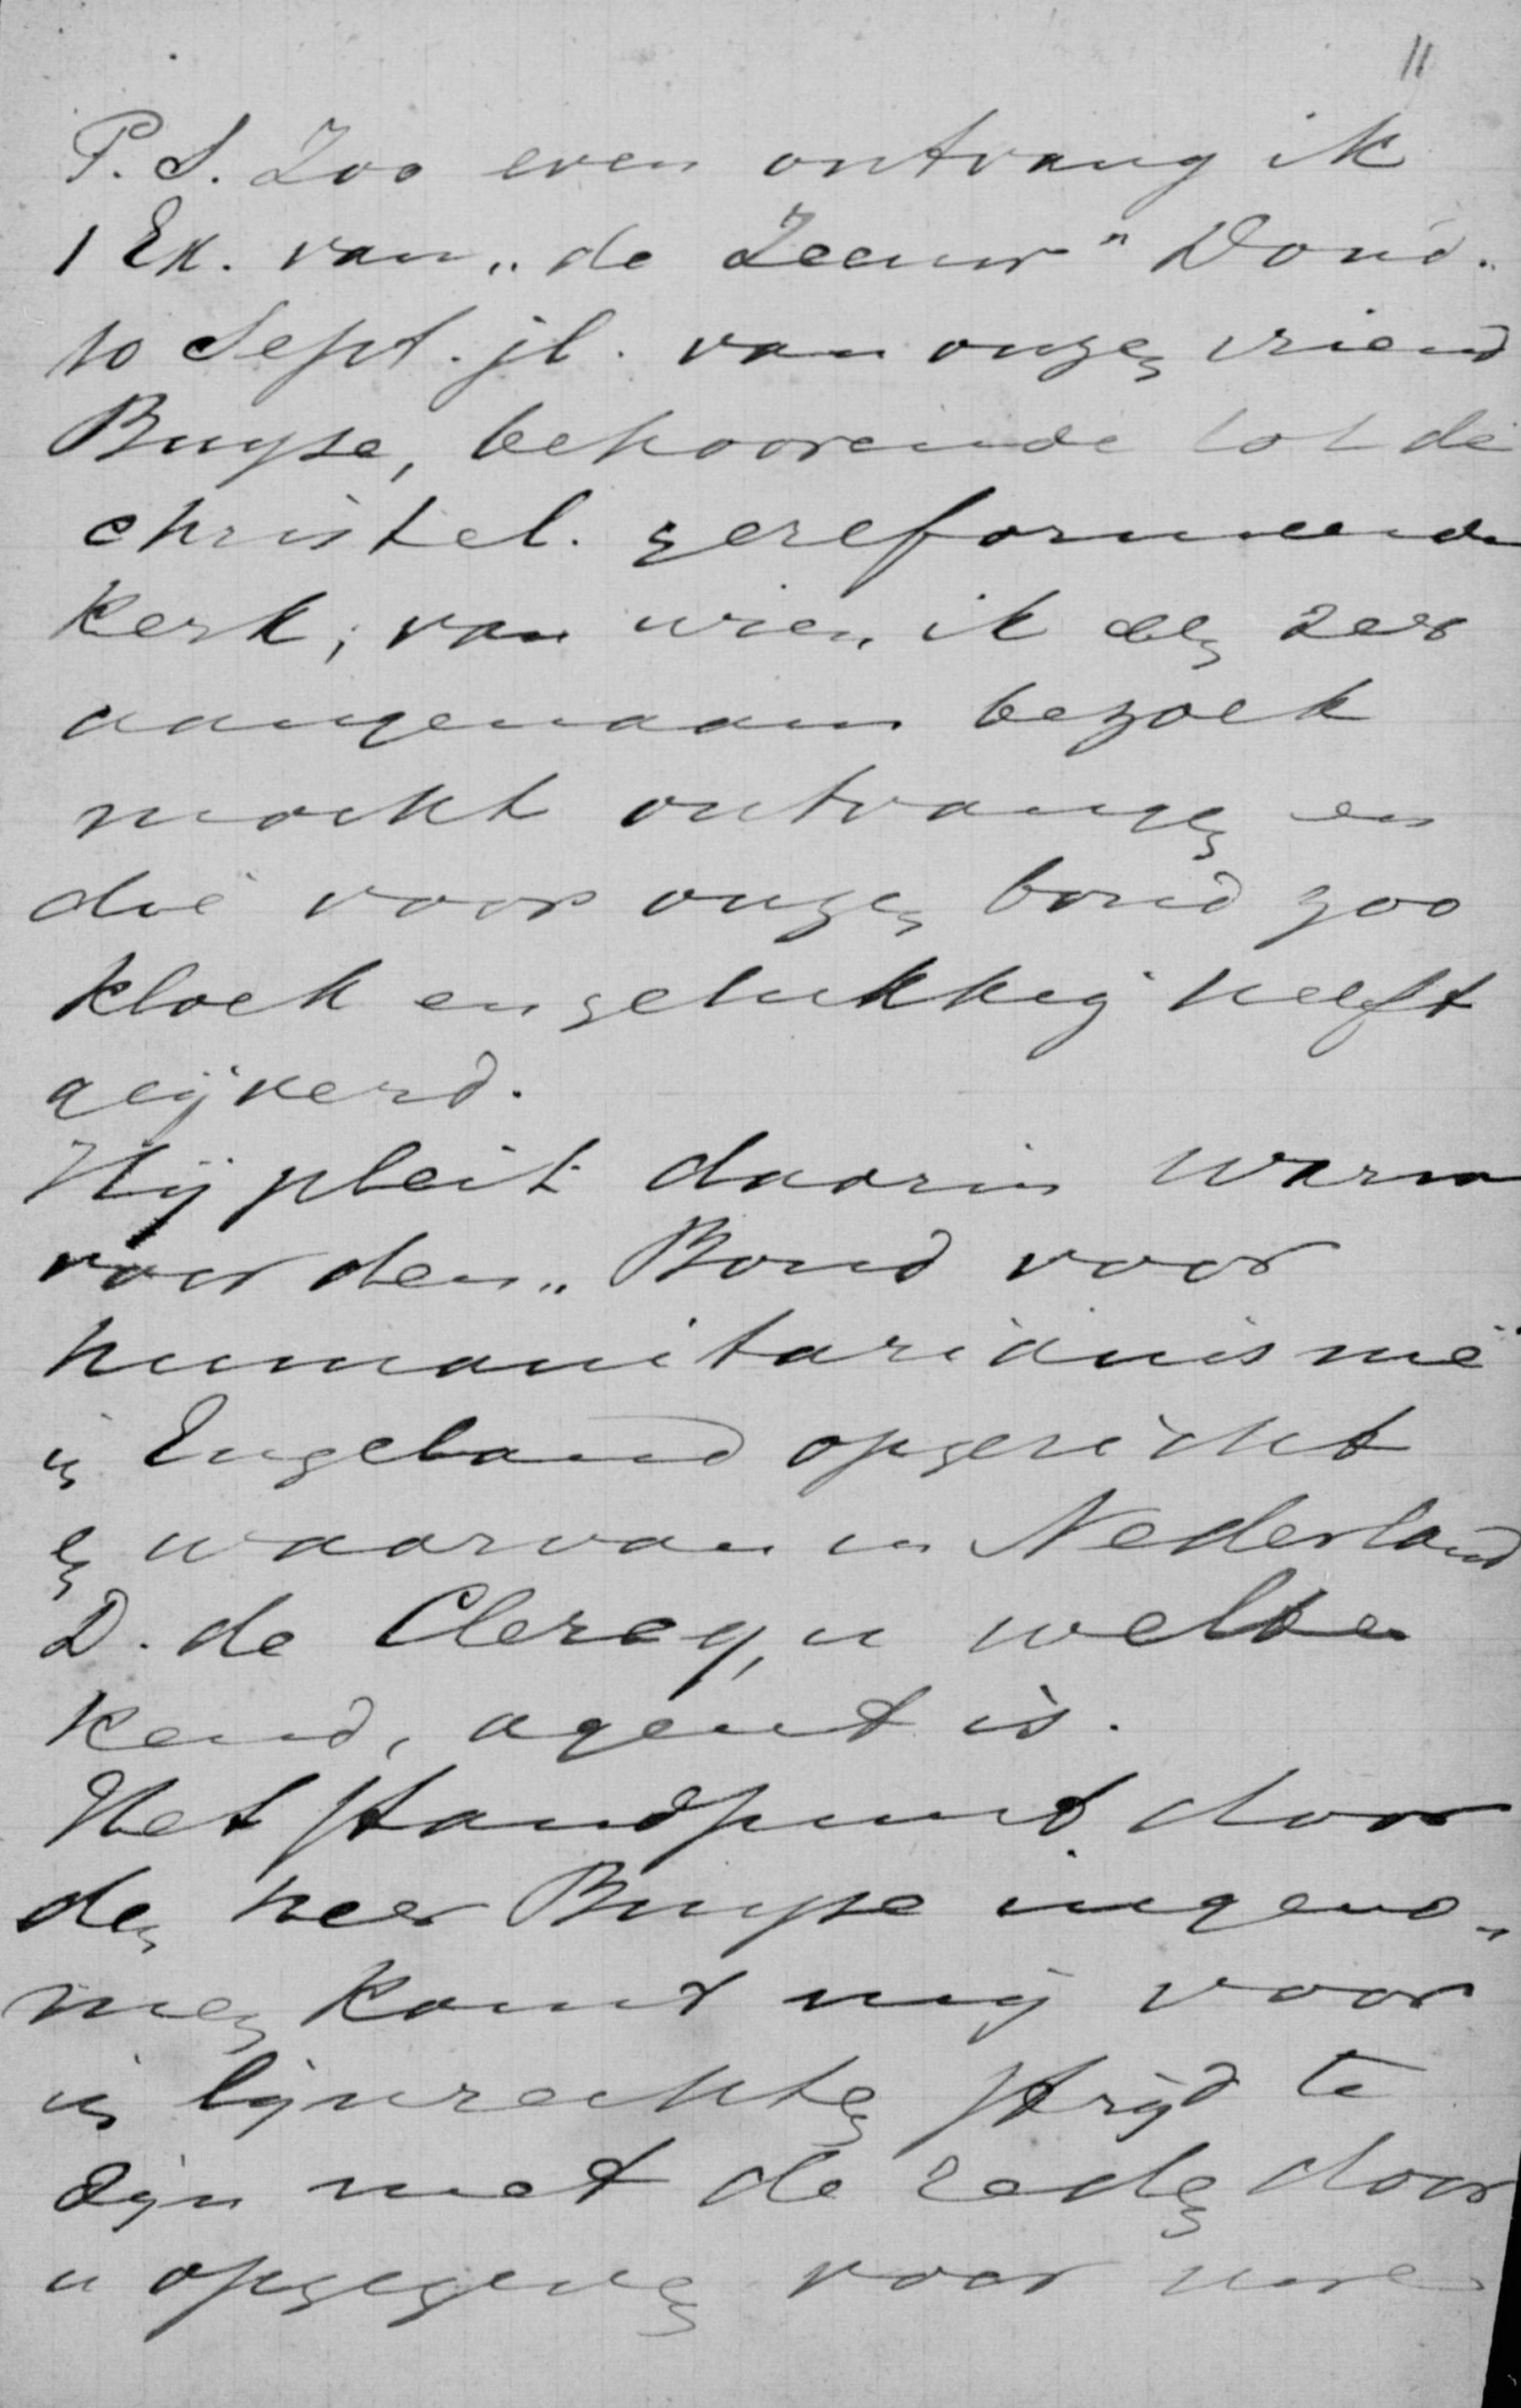 11
P.S. Zoo even ontvang ik
1 Ex. van „de Zeeuw" Dond.
10 Sept. jl. van onzen vriend
Buyse, behoorende tot de
christel. gereformeerde
kerk, van wien ik een zeer
aangenaam bezoek
mocht ontvangen en
die voor onzen bond zoo
kloek en gelukkig heeft
geijverd.
Hij pleit daarin warm
voor den „Bond voor
humanitarianisme
in Engeland opgericht
en waarvan in Nederland
D. de Clercq, u welbe
kend, agent is.
Het standpunt door
den heer Buyse ingeno„
men komt mij voor
in lijnrechten strijd te
zijn met de reden door
u opgegeven voor uwe